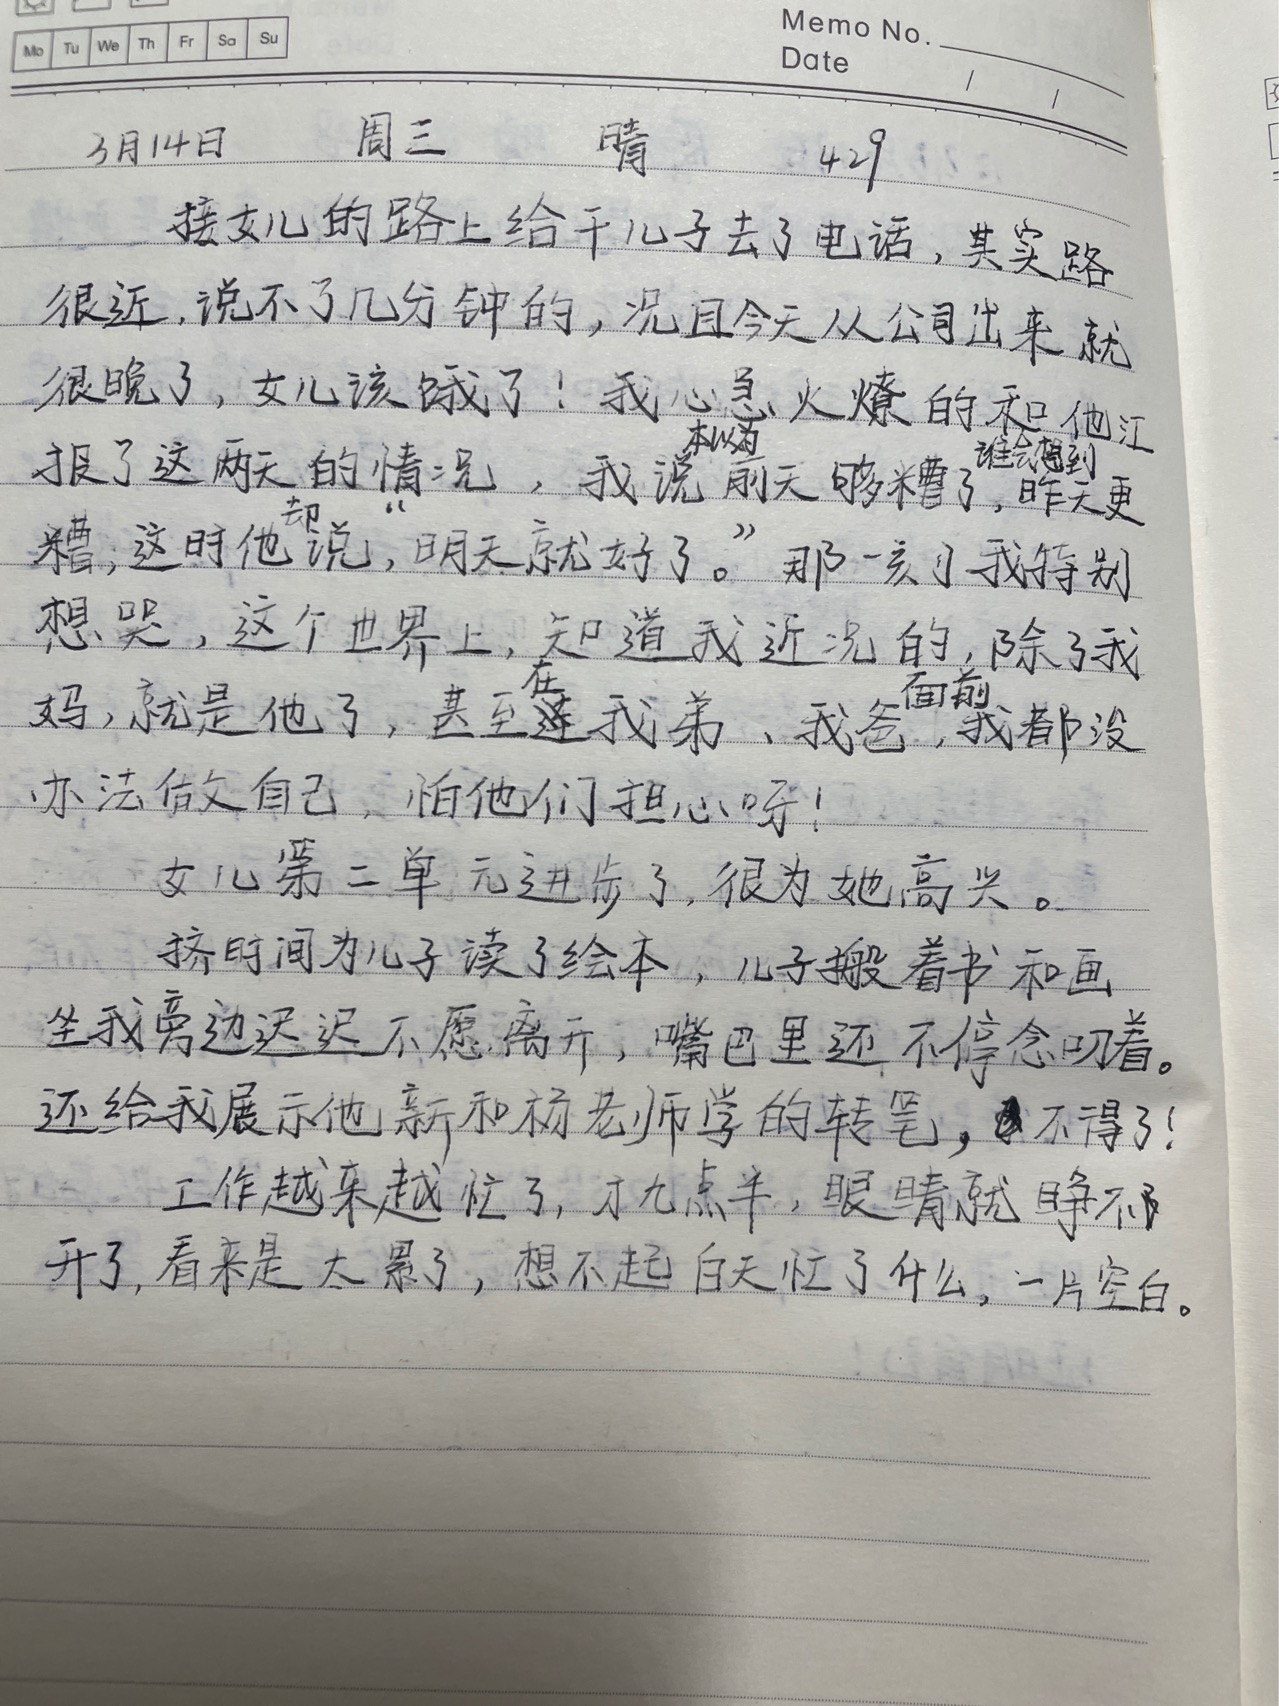 Mo Tu We Th Fr Sa Su
Memo No.
Date / /
3月14日 周三 晴 429
接女儿的路上给干儿子去了电话,其实路
很近,说不了几分钟的,况且今天从公司出来就
很晚了,女儿该饿了!我心急火燎的和他汇
报了这两天的情况,我说本以为前天够糟了,谁会想到昨天更
糟,这时他却说,“明天就好了。”那一刻我特别
想哭,这个世界上,知道我近况的,除了我
妈,就是他了,甚至在我弟、我爸面前,我都没
办法做自己,怕他们担心呀!
女儿第二单元进步了,很为她高兴。
挤时间为儿子读了绘本,儿子搬着书和画
坐我旁边迟迟不愿离开,嘴巴里还不停念叨着。
还给我展示他新和杨老师学的转笔,不得了!
工作越来越忙了,才九点半,眼睛就睁不
开了,看来是太累了,想不起白天忙了什么,一片空白。